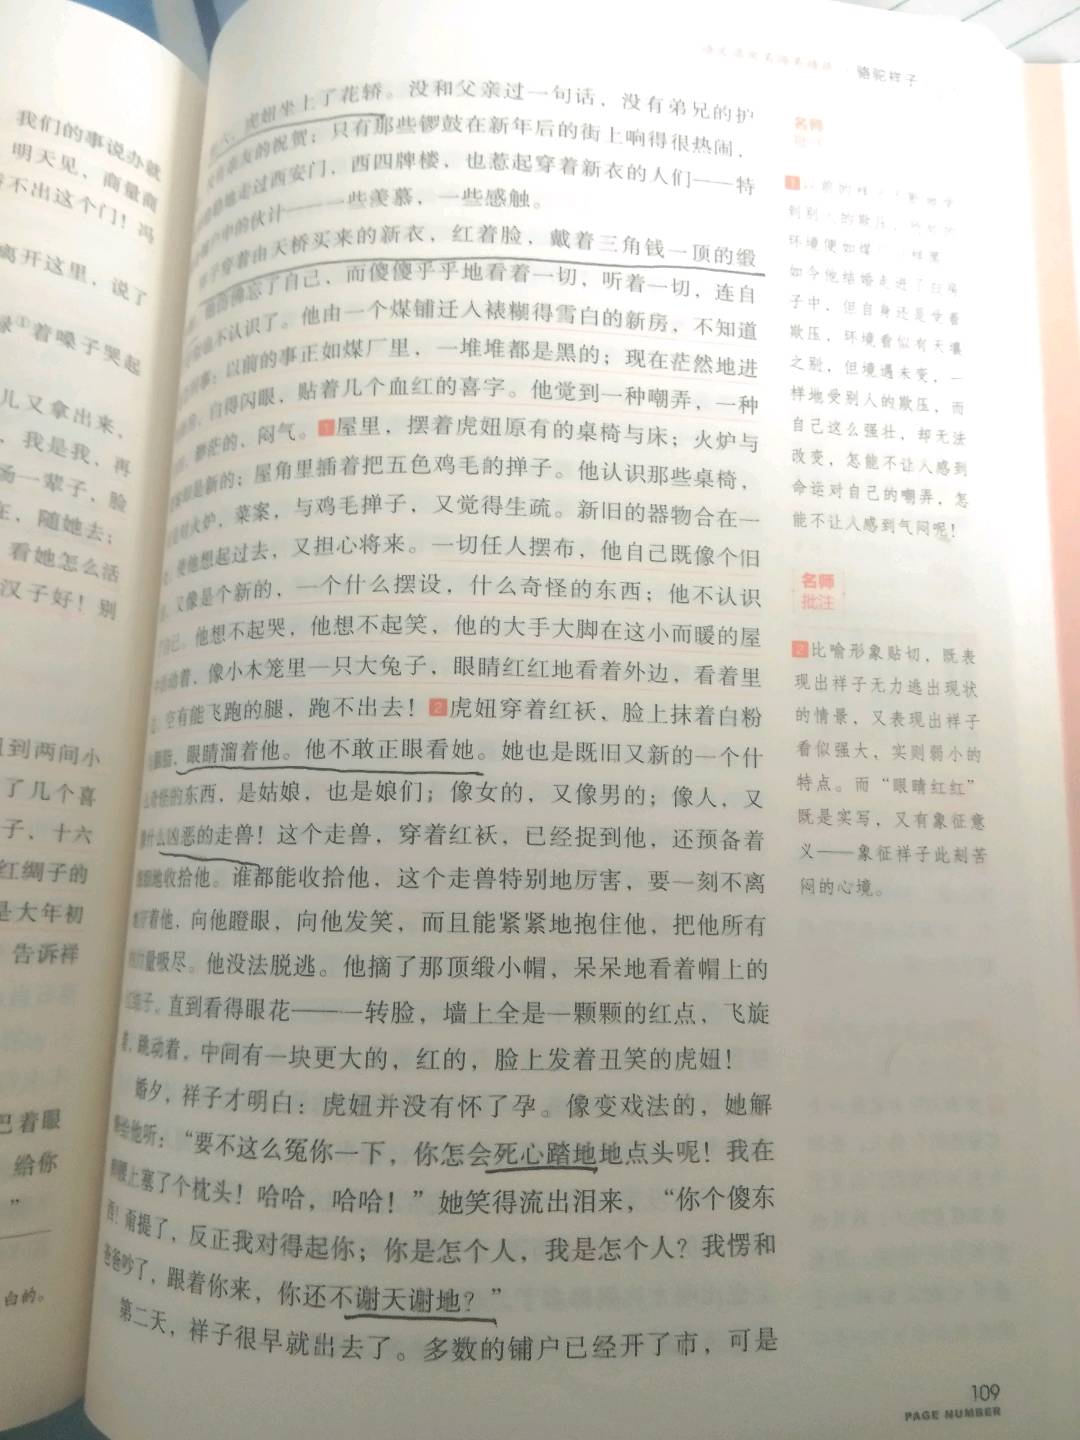 我们的事说办就
明天见，商量商
不出这个门！冯
离开这里，说了
①着嗓子哭起
儿又拿出来，
，我是我，再
汤一辈子，脸
在，随她去；
看她怎么活
汉子好！别
到两间小
了几个喜
子，十六
红绸子的
是大年初
告诉祥
巴着眼
给你
”
白的。
骆驼祥子
六，虎妞坐上了花轿。没和父亲过一句话，没有弟兄的护
亲友的祝贺；只有那些锣鼓在新年后的街上响得很热闹，
地走过西安门，西四牌楼，也惹起穿着新衣的人们——特
户中的伙计——一些羡慕，一些感触。
子穿着由天桥买来的新衣，红着脸，戴着三角钱一顶的缎
仿佛忘了自己，而傻傻乎乎地看着一切，听着一切，连自
不认识了。他由一个煤铺迁入裱糊得雪白的新房，不知道
事：以前的事正如煤厂里，一堆堆都是黑的；现在茫然地进
白得闪眼，贴着几个血红的喜字。他觉到一种嘲弄，一种
渺茫的，闷气。1屋里，摆着虎妞原有的桌椅与床；火炉与
是新的；屋角里插着把五色鸡毛的掸子。他认识那些桌椅，
对火炉，菜案，与鸡毛掸子，又觉得生疏。新旧的器物合在一
使他想起过去，又担心将来。一切任人摆布，他自己既像个旧
又像是个新的，一个什么摆设，什么奇怪的东西；他不认识
了自己。他想不起哭，他想不起笑，他的大手大脚在这小而暖的屋
中活动着，像小木笼里一只大兔子，眼睛红红地看着外边，看着里
空有能飞跑的腿，跑不出去！2虎妞穿着红袄，脸上抹着白粉
胭脂，眼睛溜着他。他不敢正眼看她。她也是既旧又新的一个什
么奇怪的东西，是姑娘，也是娘们；像女的，又像男的；像人，又
像什么凶恶的走兽！这个走兽，穿着红袄，已经捉到他，还预备着
细细地收拾他。谁都能收拾他，这个走兽特别地厉害，要一刻不离
地守着他，向他瞪眼，向他发笑，而且能紧紧地抱住他，把他所有
的力量吸尽。他没法脱逃。他摘了那顶缎小帽，呆呆地看着帽上的
红结子，直到看得眼花——一转脸，墙上全是一颗颗的红点，飞旋
着，跳动着，中间有一块更大的，红的，脸上发着丑笑的虎妞！
婚夕，祥子才明白：虎妞并没有怀了孕。像变戏法的，她解
释给他听：“要不这么冤你一下，你怎会死心踏地地点头呢！我在
裤腰上塞了个枕头！哈哈，哈哈！”她笑得流出泪来，“你个傻东
西！甭提了，反正我对得起你；你是怎个人，我是怎个人？我愣和
爸爸吵了，跟着你来，你还不谢天谢地？”
第二天，祥子很早就出去了。多数的铺户已经开了市，可是
名师
1
到别人的欺压，
环境便如煤
如今他结婚走进了白房
子中，但自身还是受着
欺压，环境看似有天壤
之别，但境遇未变，一
样地受别人的欺压，而
自己这么强壮，却无法
改变，怎能不让人感到
命运对自己的嘲弄，怎
能不让人感到气闷呢！
名师
批注
2比喻形象贴切，既表
现出祥子无力逃出现状
的情景，又表现出祥子
看似强大，实则弱小的
特点。而“眼睛红红”
既是实写，又有象征意
义——象征祥子此刻苦
闷的心境。
109
PAGE NUMBER